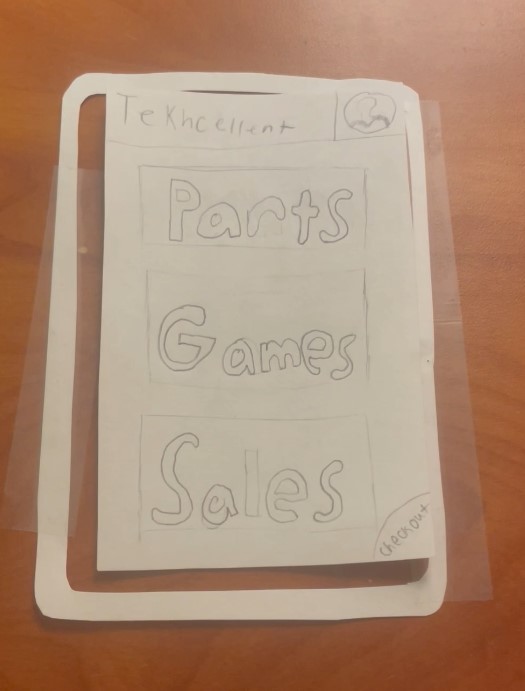 Tekhcellent
Parts
Games
Sales
checkout